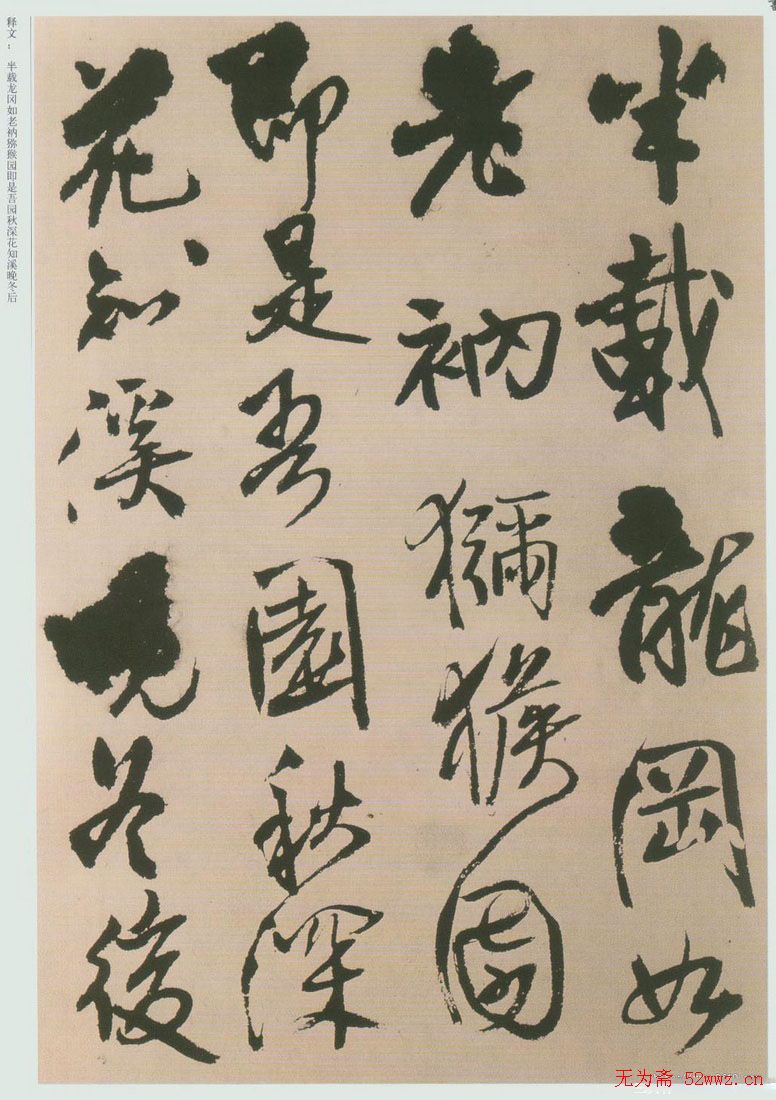 半載龍岡如
老衲獼猴園
即是吾園秋深
花知溪晚冬後
释文：半载龙冈如老衲猕猴园即是吾园秋深花知溪晚冬后
无为斋 52wwz.cn